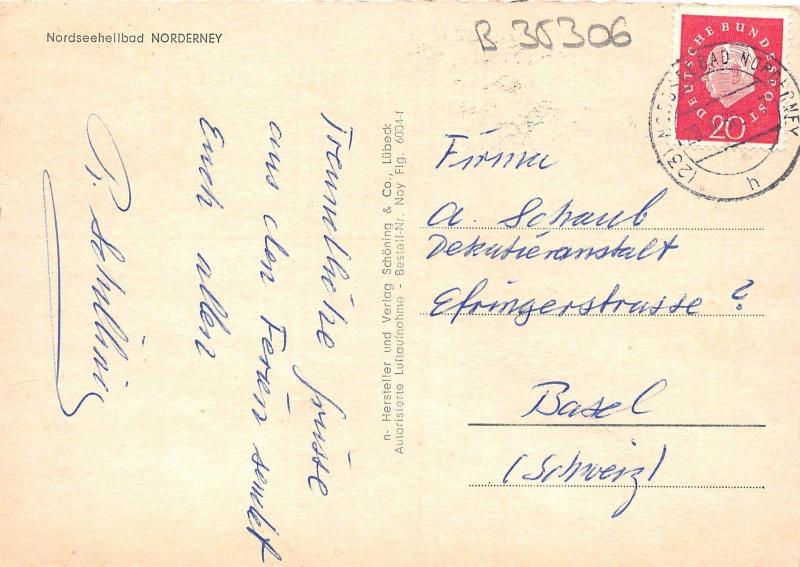 Nordseeheilbad NORDERNEY
B 35306
DEUTSCHE BUNDESPOST
20
(23) NORDSEEBAD NORDERNEY
Freundliche Grüsse
aus den Ferien sendet
Euch allen
n- Hersteller und Verlag Schöning & Co., Lübeck
Autorisierte Luftaufnahme - Bestell-Nr. Noy Flg. 6004-f
Firma
A. Schaub
Dekatieranstalt
Efringerstrasse ?
Basel
(Schweiz)